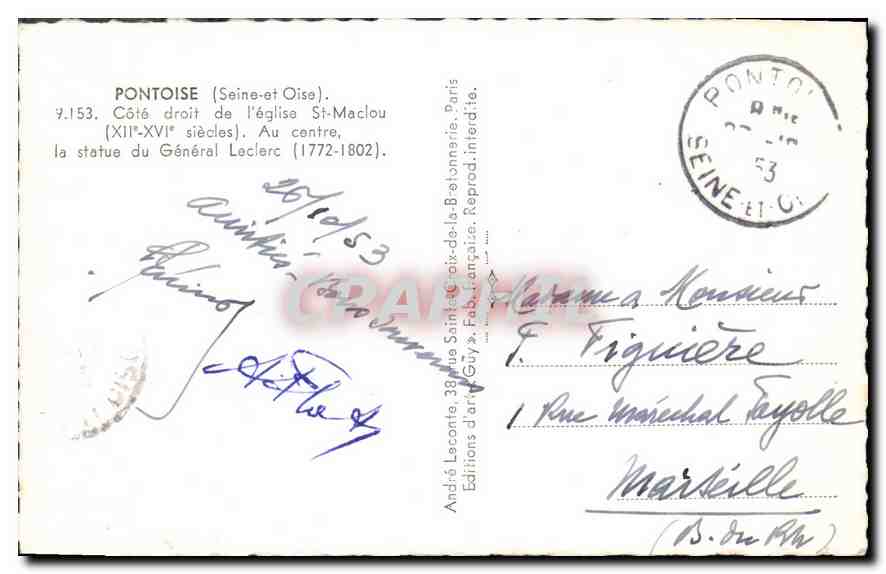 PONTOISE (Seine-et Oise).
9.153. Côté droit de l'église St-Maclou
(XIIe-XVIe siècles). Au centre,
la statue du Général Leclerc (1772-1802).
26/10/53
Amitiés - Bons Souvenirs
André Leconte, 38, rue Sainte-Croix-de-la-Bretonnerie, Paris
Editions d'art « Guy ». Fab. Française. Reprod. interdite.
PONTOI
53
SEINE-ET-O
CPARPHIL
Madame & Monsieur
F. Figuière
1 Rue Maréchal Fayolle
Marseille
(B. du Rh)